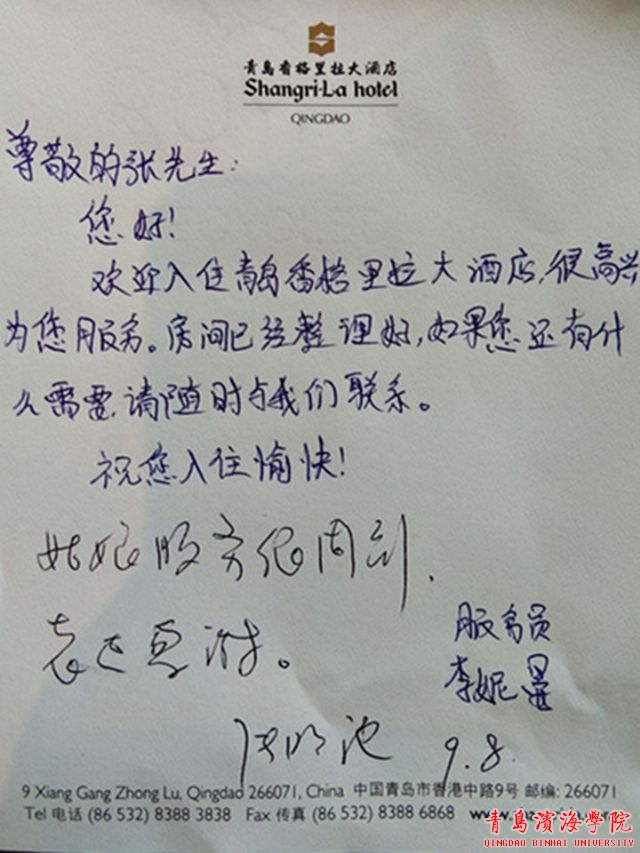 青岛香格里拉大酒店
Shangri-La hotel
QINGDAO
尊敬的张先生:
您好!
欢迎入住青岛香格里拉大酒店,很高兴
为您服务。房间已经整理好,如果您还有什
么需要,请随时与我们联系。
祝您入住愉快!
姑娘服务很周到,
表示感谢。
服务员
李妮
9.8.
9 Xiang Gang Zhong Lu, Qingdao 266071, China 中国青岛市香港中路9号 邮编: 266071
Tel 电话 (86 532) 8388 3838 Fax 传真 (86 532) 8388 6868
青岛滨海学院
QINGDAO BINHAI UNIVERSITY